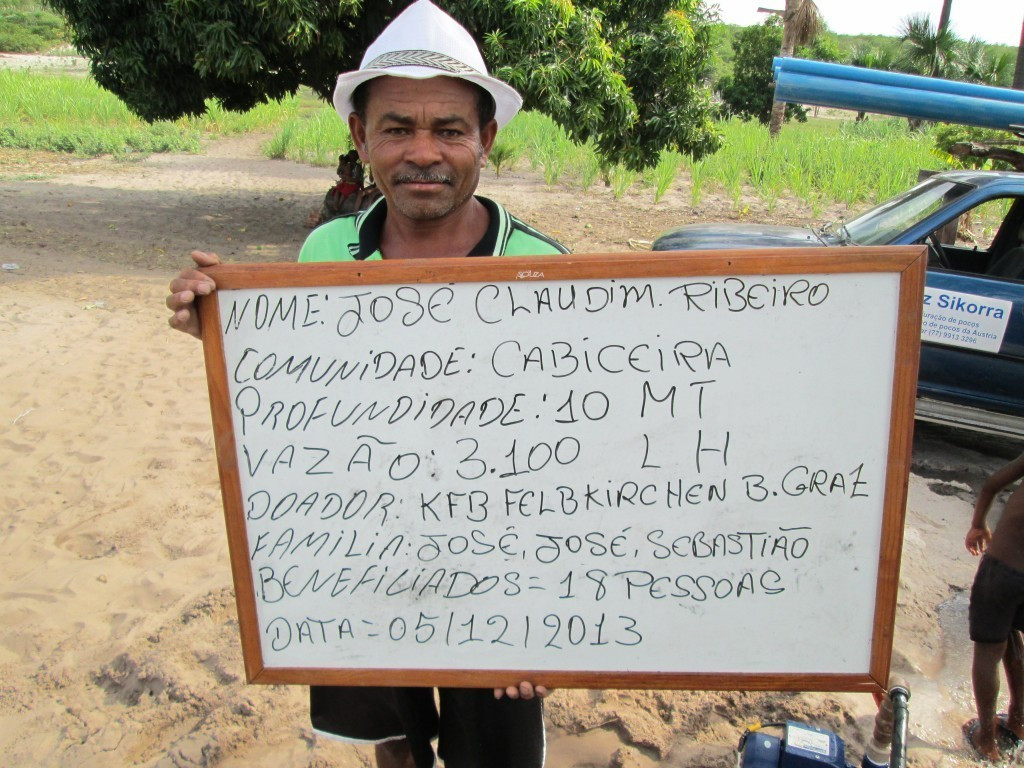 SOUZA
NOME: JOSÉ CLAUDIM. RIBEIRO
COMUNIDADE: CABICEIRA
PROFUNDIDADE: 10 MT
VAZÃO: 3.100 L H
DOADOR: KFB FELBKIRCHEN B. GRAZ
FAMILIA: JOSÉ, JOSÉ, SEBASTIÃO
BENEFILIADOS = 18 PESSOAS
DATA = 05/12/2013
z Sikorra
uração de pocos
de pocos da Austria
(77) 9913 3296